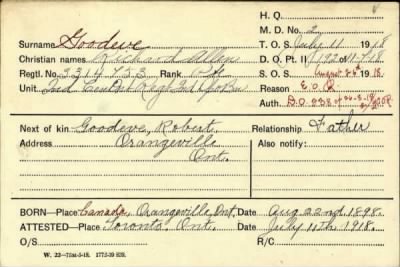 H. Q. 4
M. D. No. 2
Surname Goodeve T. O. S. July 11 1918
Christian names Richard Allen D. O. Pt. II 192 of 11-7-18
Regtl. No. Rank Pte S. O. S. August 26th 1918
Unit 2nd Central Regt 2nd Depot Bn Reason E.O.R.
Auth. D.O. 238 of 26-8-18
Next of kin Goodeve, Robert Relationship Father
Address Orangeville Also notify:
Ont.
BORN—Place Canada, Orangeville, Ont. Date Aug 22nd 1898.
ATTESTED—Place Toronto, Ont. Date July 11th 1918.
O/S R/C
W. 22—75M-5-18. 1772-39 829.